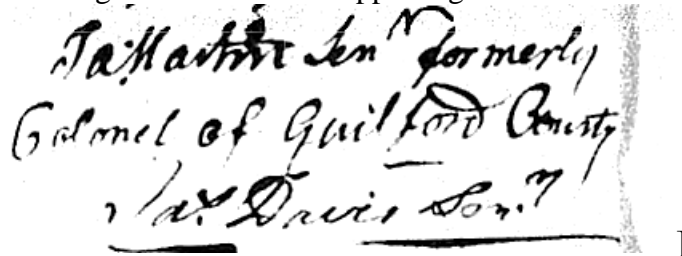 Ja. Martin Senr formerly
Colonel of Guilford County
Jas. Davis Senr.